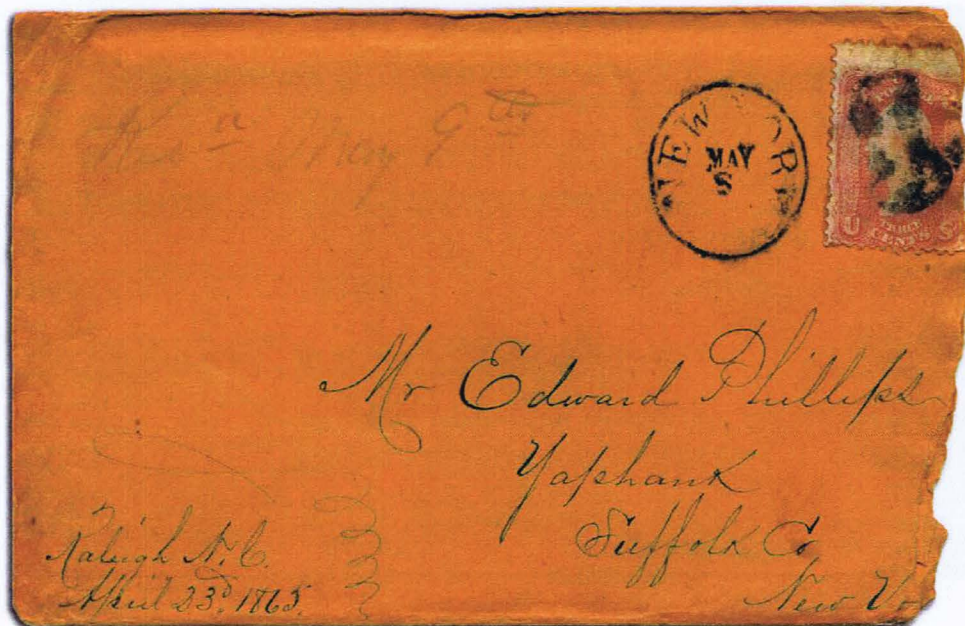 Rec^d May 9^th
NEW YORK
MAY
8
U S
THREE
CENTS
Mr Edward Phillips
Yaphank
Suffolk Co
New Yor
Raleigh N.C.
April 23^d. 1865.